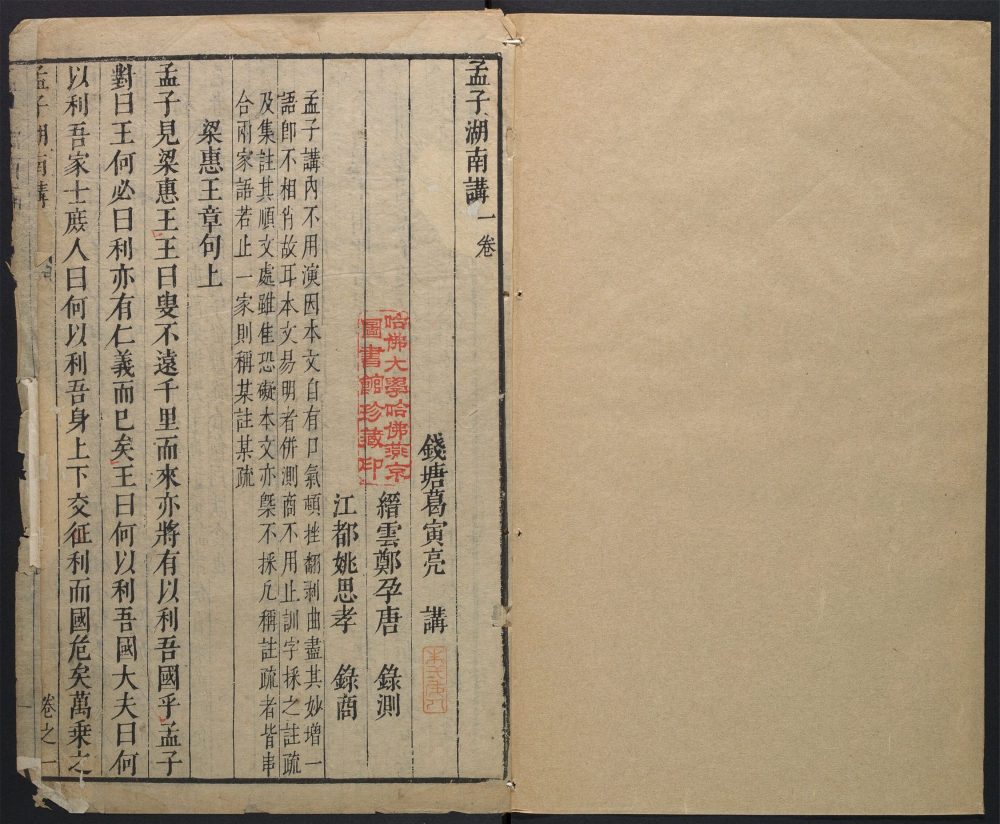 孟子湖南講一卷
錢塘葛寅亮 講
縉雲鄭孕唐 錄測
江都姚思孝 錄商
哈佛大學哈佛燕京
圖書館珍藏印
孟子講內不用演因本文自有口氣頓挫翻剥曲盡其妙增一
語即不相肖故耳本文易明者併測商不用止訓字採之註疏
及集註其順文處雖佳恐礙本文亦槩不採凡稱註疏者皆串
合兩家語若止一家則稱某註某疏
梁惠王章句上
孟子見梁惠王王曰叟不遠千里而來亦將有以利吾國乎孟子
對曰王何必曰利亦有仁義而已矣王曰何以利吾國大夫曰何
以利吾家士庶人曰何以利吾身上下交征利而國危矣萬乘之
孟子湖南講
卷之一